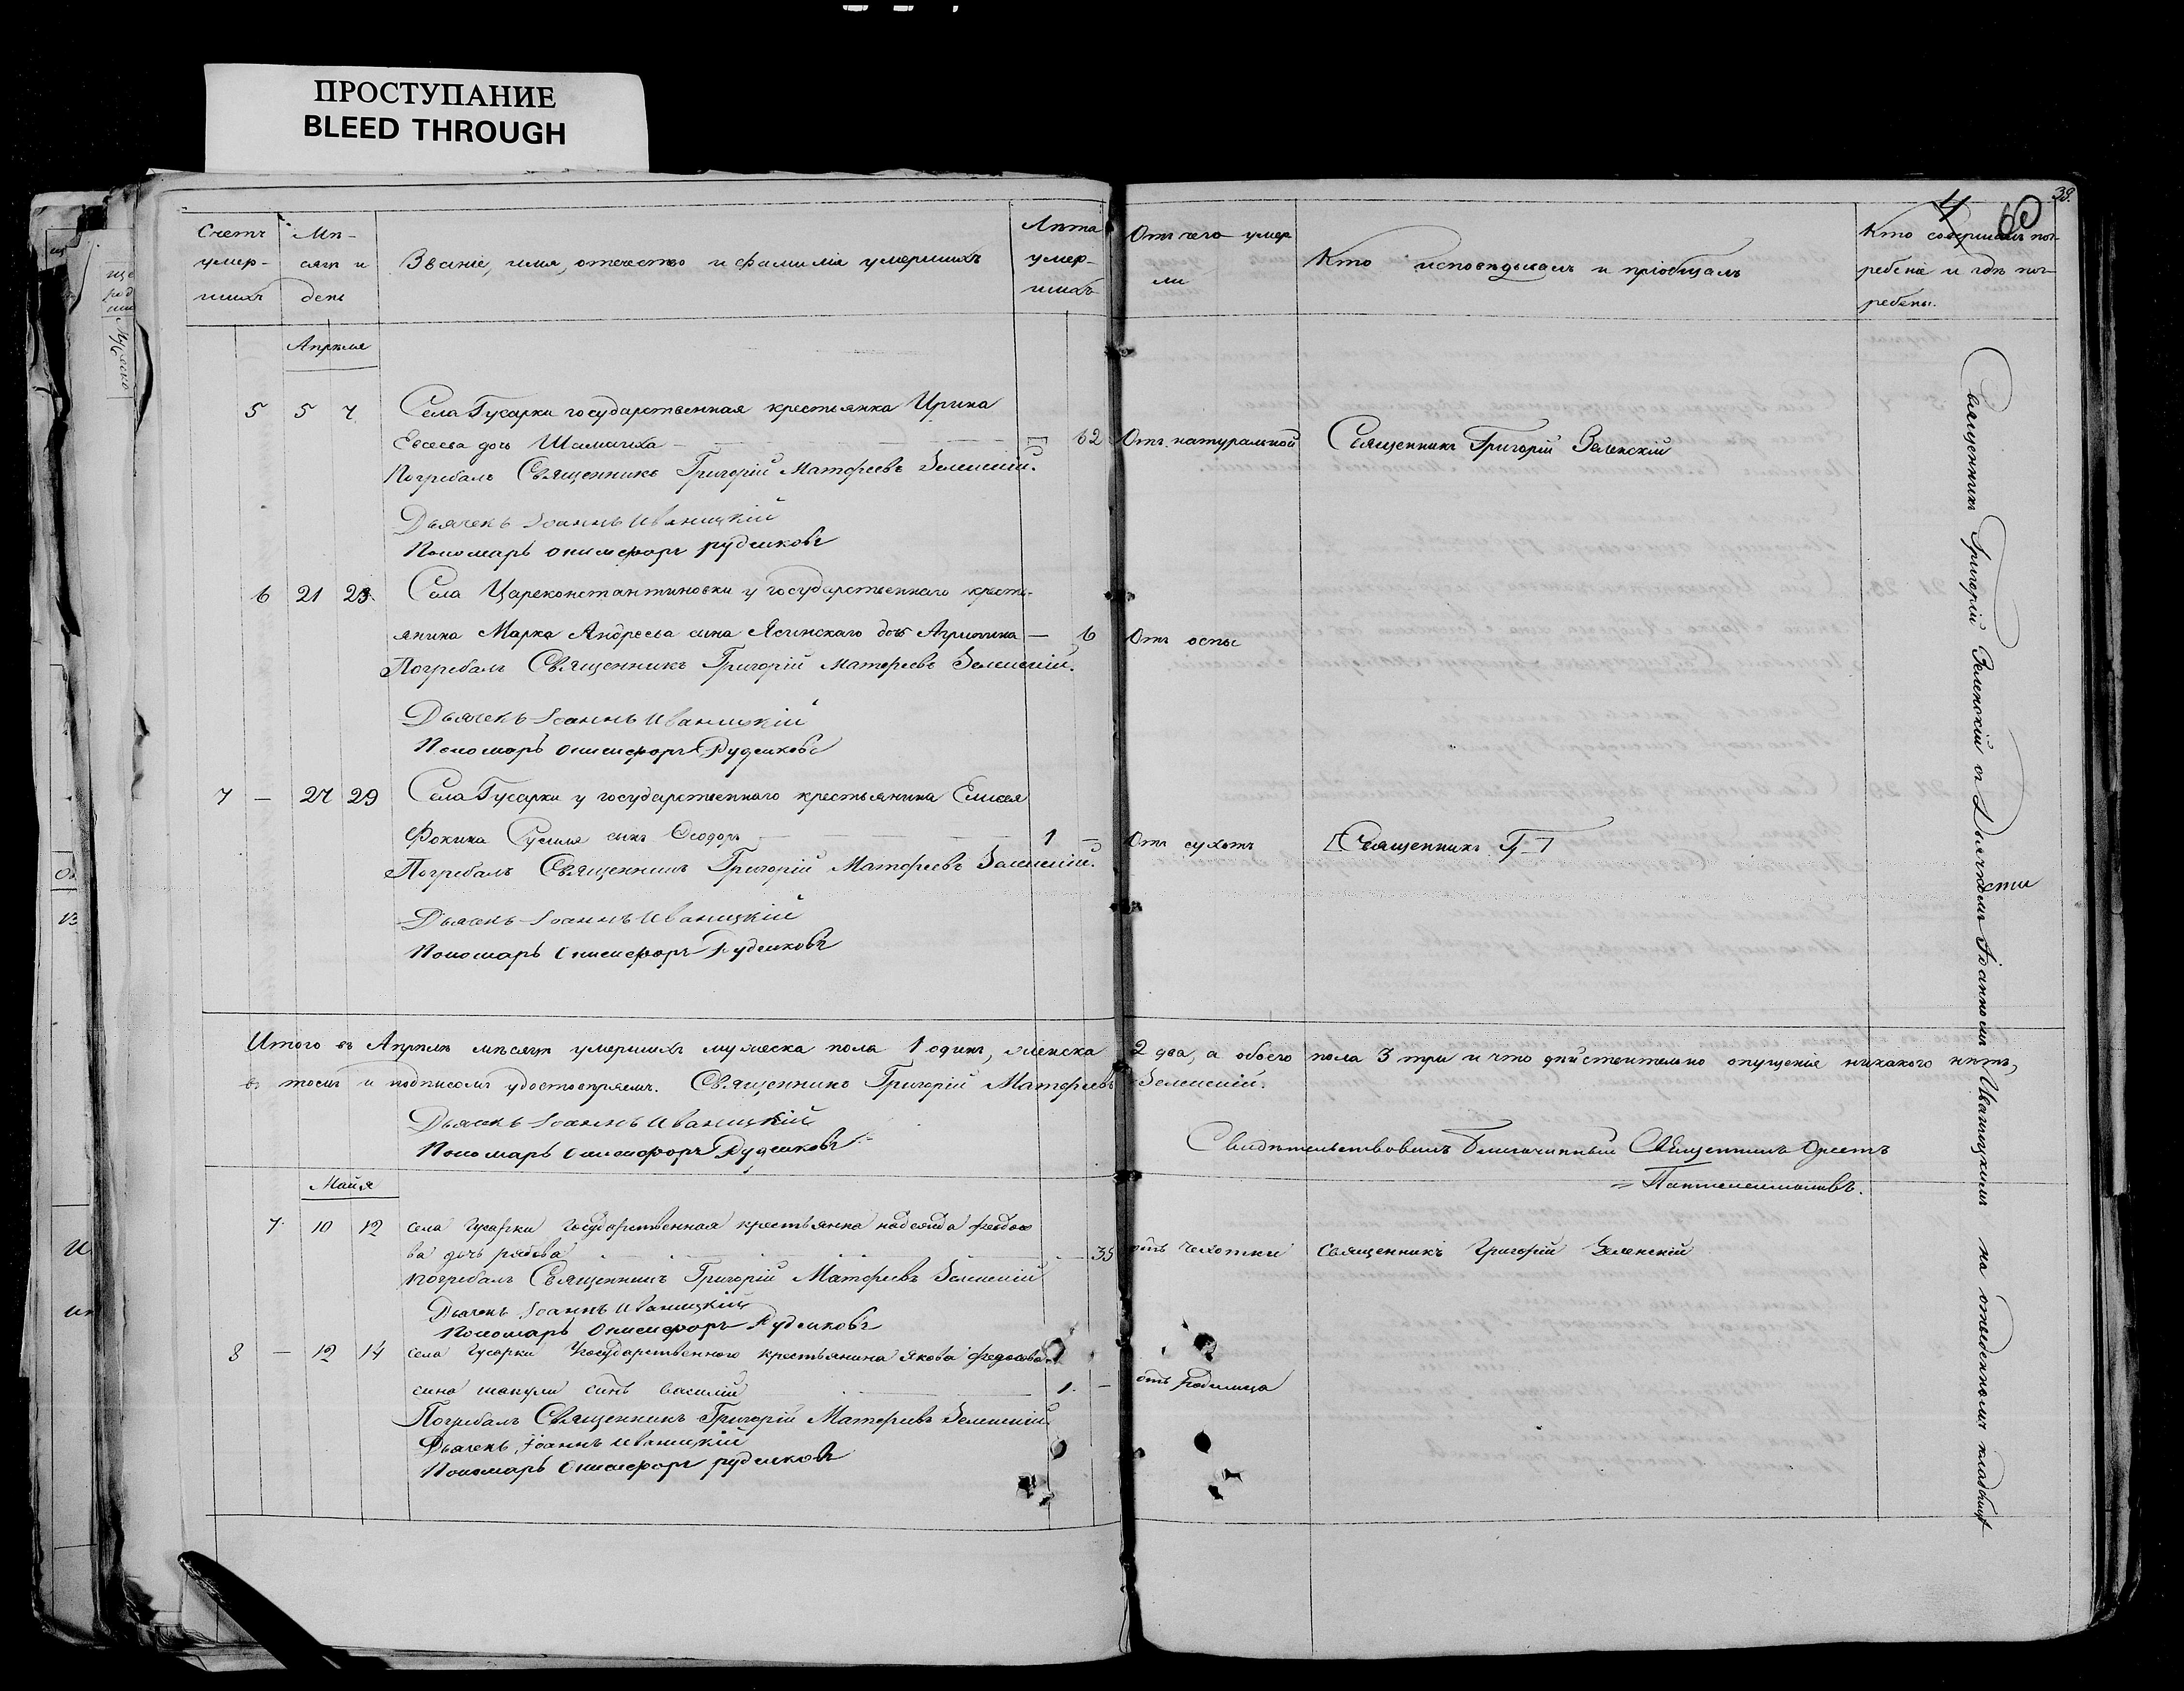 ПРОСТУПАНИЕ
BLEED THROUGH
38.
4
60
Счетъ умер-шихъ
Мѣ-сяцъ и день
Званіе, имя, отечество и фамилія умершихъ
Лѣта умер-шихъ
Отъ чего умер ли
Кто исповѣдывалъ и пріобщалъ
Кто совершалъ пог-ребеніе и гдѣ пог-ребены.
Апрѣля
5 5 7 Села Гусарки государственная крестьянка Ирина
Евсеева дочь 62 Отъ натуральной Священникъ Григорій Зеленскій
Погребалъ Священникъ Григорій Матфеевъ Зеленскій.
Дьячекъ Іоаннъ Иваницкій
Пономарь Онисифоръ Рудчиковъ
6 21 23 Села Цареконстантиновки у государственнаго кресть-
янина Марка Андреева сына Ясинскаго дочь Агрипина — 6 Отъ оспы
Погребалъ Священникъ Григорій Матфеевъ Зеленскій.
Дьячекъ Іоаннъ Иваницкій
Пономарь Онисифоръ
7 — 27 29 Села Гусарки у государственнаго крестьянина Елисея
Фокина сынъ Ѳеодоръ 1 — Отъ сухотъ Священникъ Г. З.
Погребалъ Священникъ Григорій Матфеевъ Зеленскій.
Дьячекъ Іоаннъ Иваницкій
Пономарь Онисифоръ
Итого въ Апрѣлѣ мѣсяцѣ умершихъ мужеска пола 1 одинъ, женска 2 два, а обоего пола 3 три и что дѣйствительно опущенія никакого нѣтъ,
въ томъ и подписомъ удостовѣряемъ. Священникъ Григорій Матфеевъ Зеленскій.
Дьячекъ Іоаннъ Иваницкій
Пономарь Онисифоръ
Свидѣтельствовалъ Благочинный Священникъ Орестъ
Пантелеимоновъ.
Майя
7. 10 12 села гусарки государственная крестьянка надежда федо
ва дочь рябова 35 отъ чахотки священникъ Григорій Зеленскій
Погребалъ Священникъ Григорій Матфеевъ Зеленскій
Дьячекъ Іоаннъ Иваницкій
Пономарь Онисифоръ
8 — 12 14 села гусарки государственного крестьянина якова федосова
сына шапули сынъ василій 1. — отъ родимца
Погребалъ Священникъ Григорій Матфеевъ Зеленскій
Дьячекъ Іоаннъ Иваницкій
Пономарь Онисифоръ
Священникъ Григорій Зеленскій съ Дьячкомъ Іоанномъ Иваницкимъ на отведенномъ кладбищѣ
сти